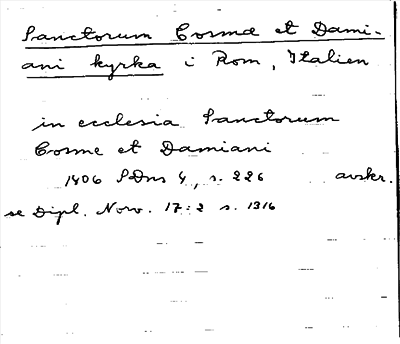 Sanctorum Cosmæ et Dami-
ani kyrka i Rom, Italien
in ecclesia Sanctorum
Cosme et Damiani
1406 SDns 4, s. 226 avskr.
se Dipl. Norv. 17:2 s. 1316